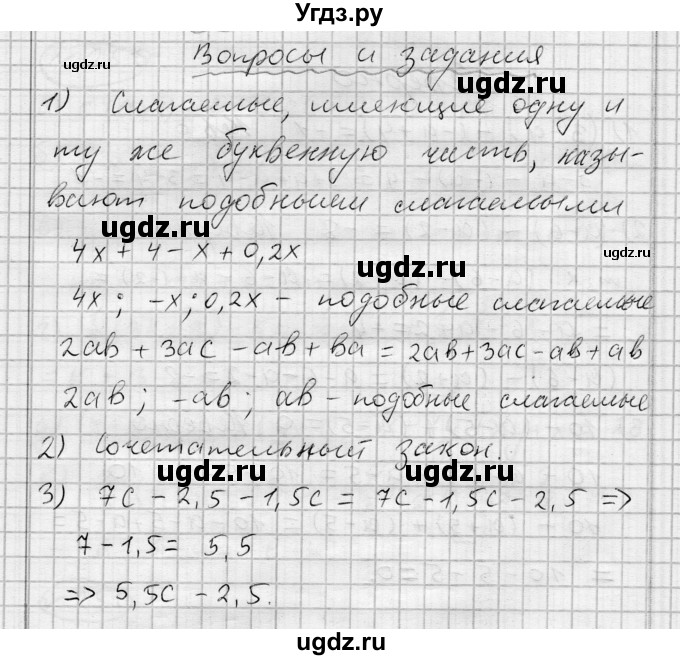 Угдз.ру
Вопросы и задания
1) Слагаемые, имеющие одну и
ту же буквенную часть, назы-
вают подобными слагаемыми
4x + 4 - x + 0,2x
4x; -x; 0,2x - подобные слагаемые
2ab + 3ac - ab + ba = 2ab + 3ac - ab + ab
2ab; -ab; ab - подобные слагаемые
2) Сочетательный закон.
3) 7c - 2,5 - 1,5c = 7c - 1,5c - 2,5 =>
7 - 1,5 = 5,5
=> 5,5c - 2,5.
ugdz.ru
ugdz.ru
ugdz.ru
ugdz.ru
ugdz.ru
ugdz.ru
ugdz.ru
ugdz.ru
ugdz.ru